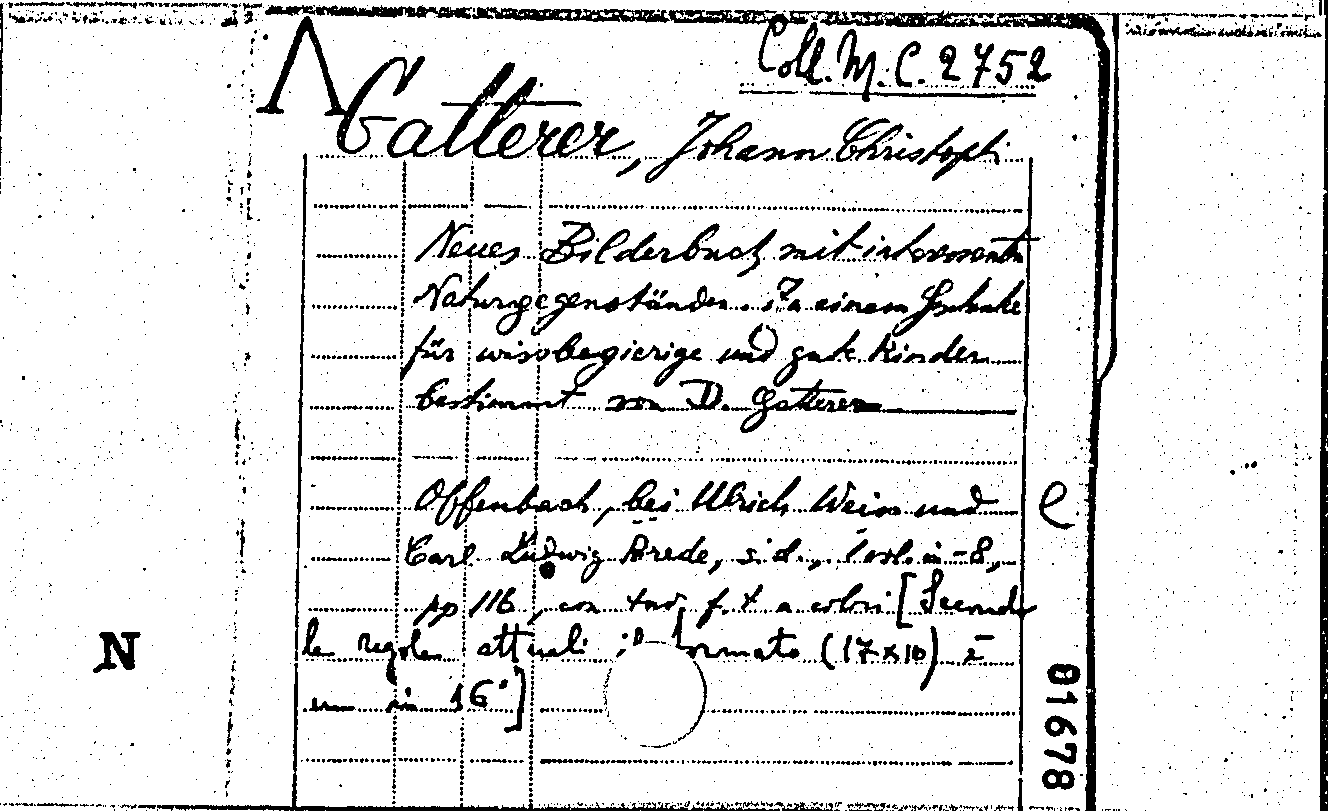 Coll. M. C. 2752
Gatterer, Johann Christoph
Neues Bilderbuch mit interessanten
Naturgegenständen. Zu einem Geschenke
für wissbegierige und gute Kinder
bestimmt von D. Gatterer
Offenbach, bei Ulrich Weiss und
e
Carl Ludwig Brede, s.d., in-8,
pp 116, con tav. f.t. a colori [Secondo
le regole attuali il formato (17x10) è
un in 16°]
N
01678